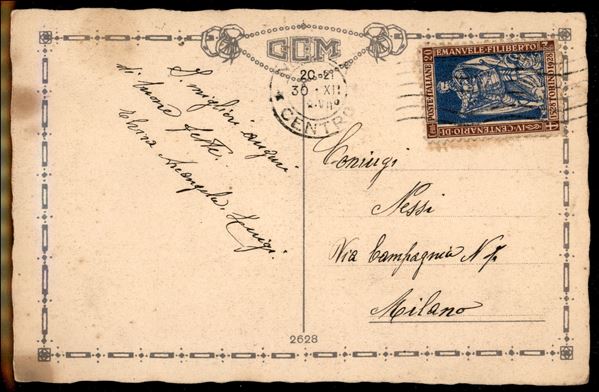 GCM
20-21
30·XII
CENTRO
POSTE·ITALIANE 20
EMANVELE·FILIBERTO
IV·CENTENARIO·DI
I migliori auguri
di buone feste.
Elvira Arcangela, Luigi.
Coniugi
Nessi
Via Campagnia N 7
Milano
2628